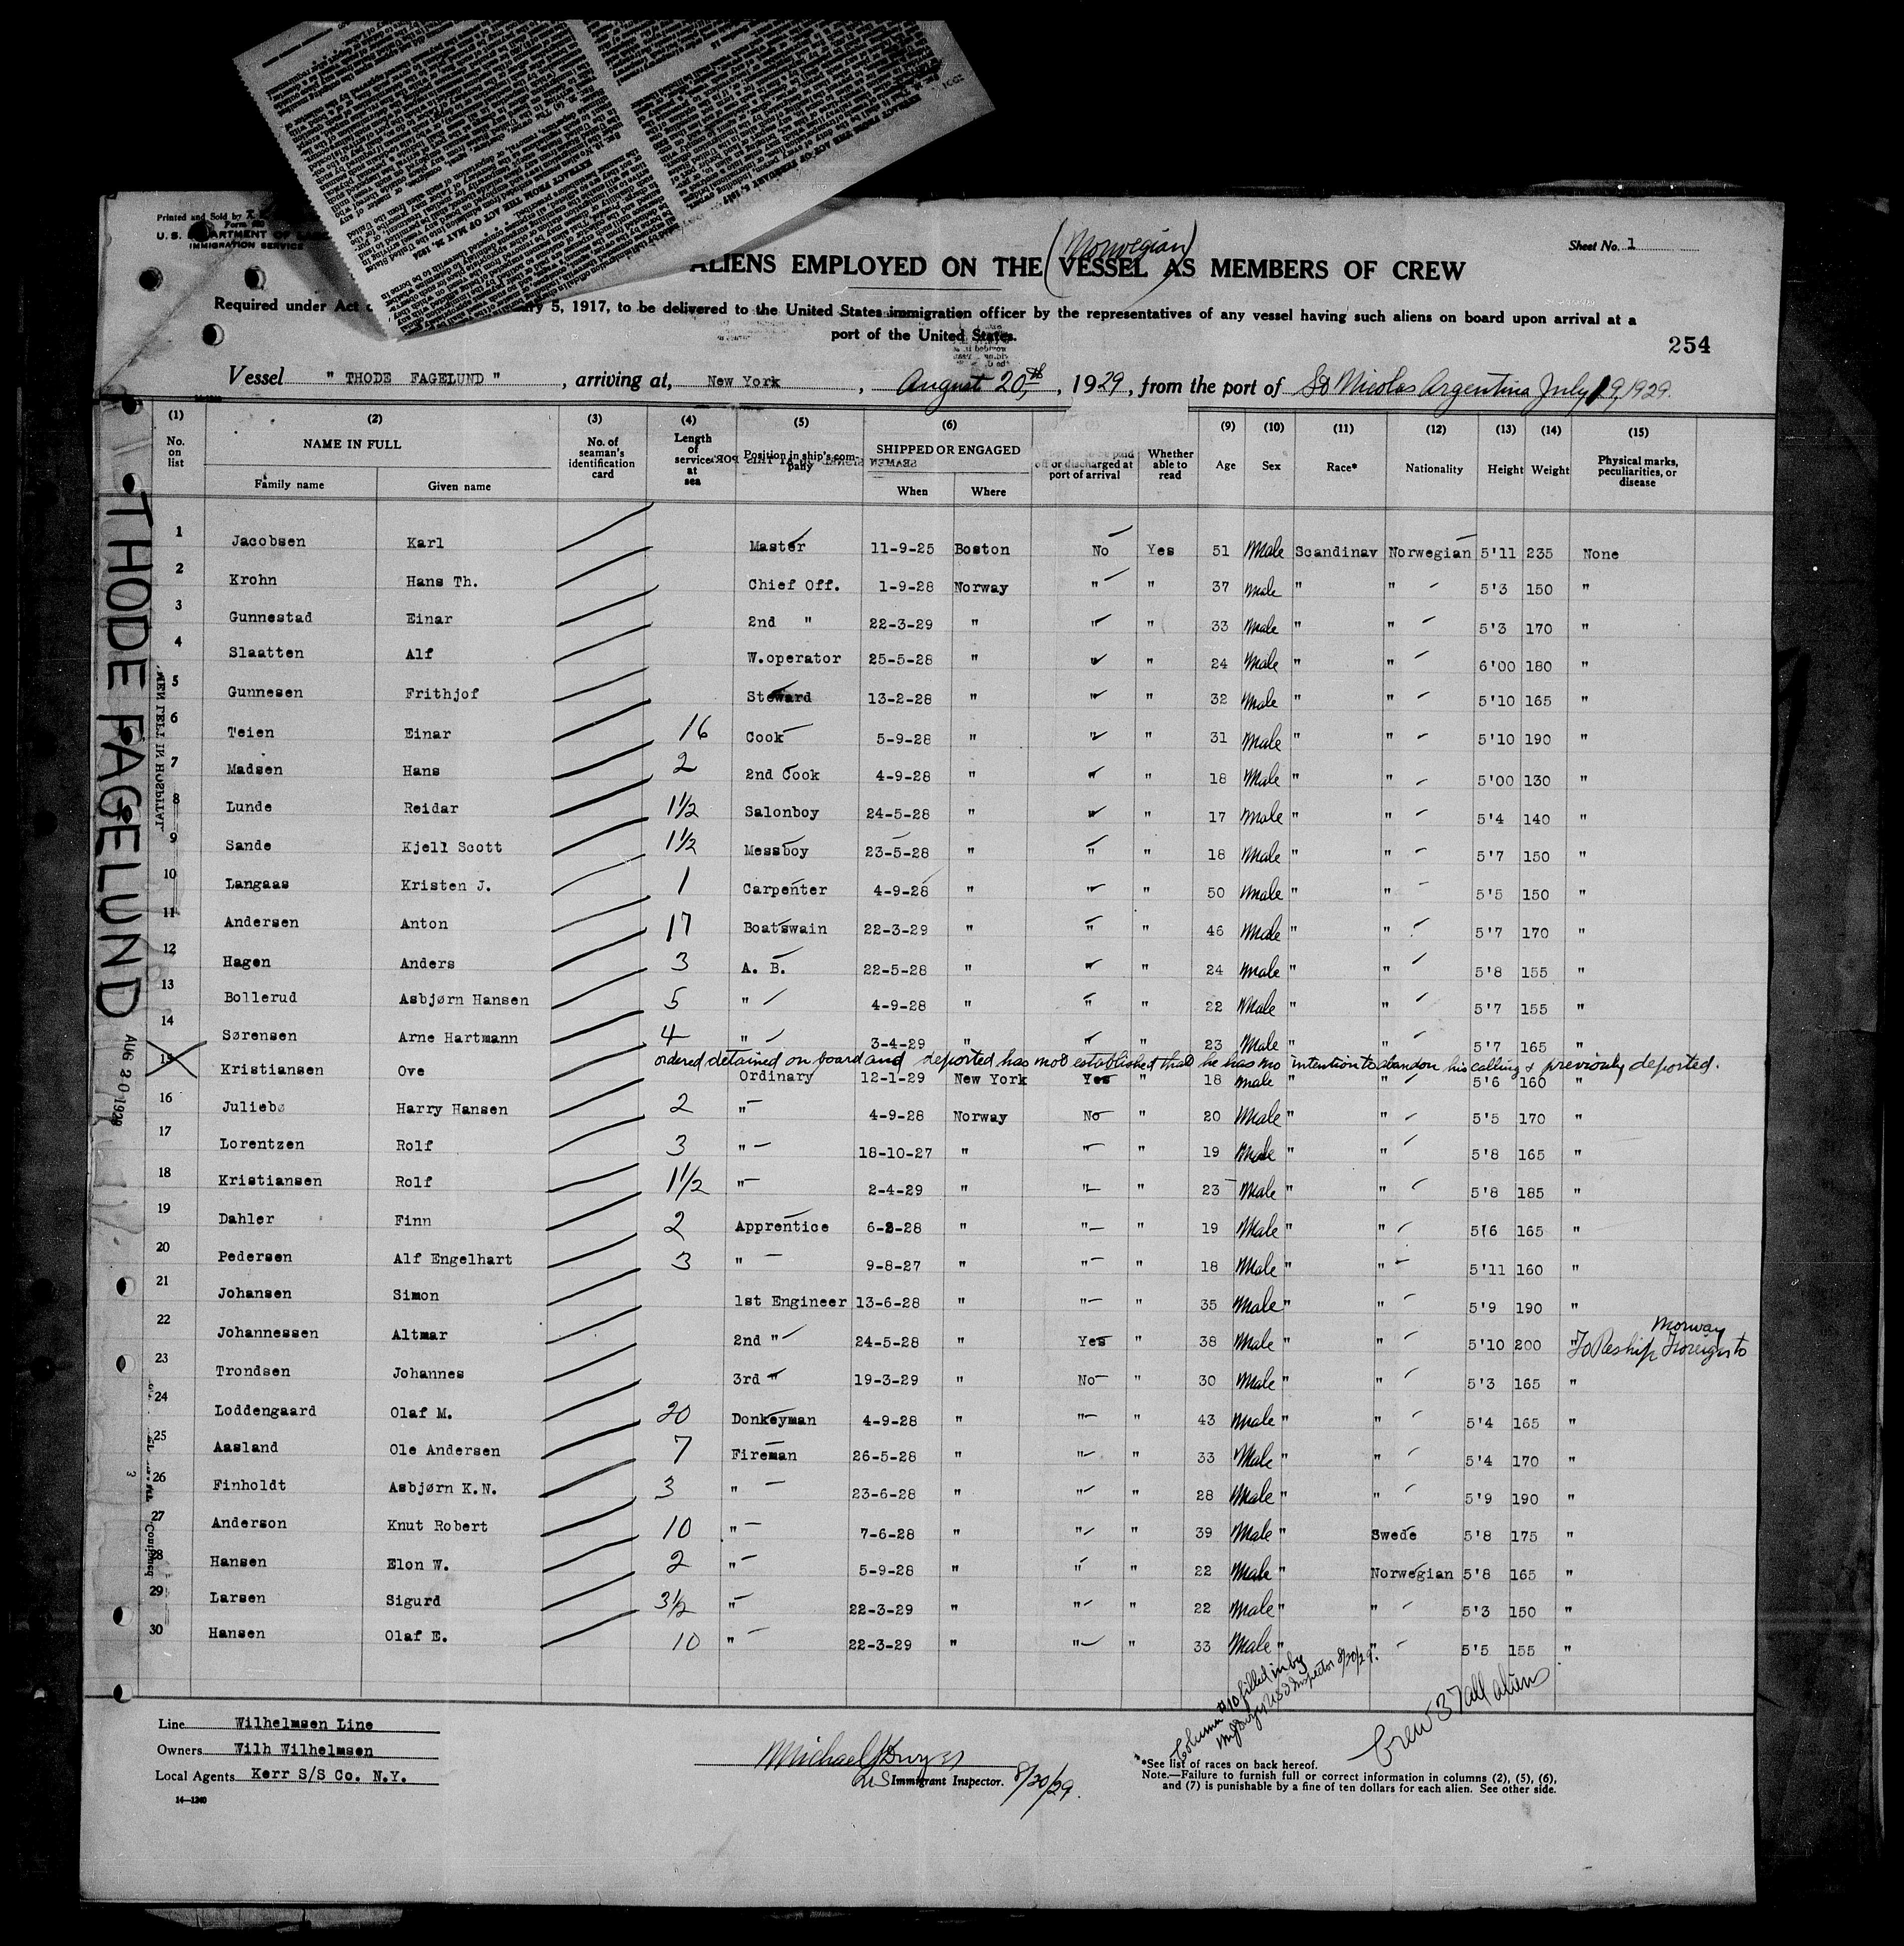 Printed and Sold by
U. S. DEPARTMENT OF
IMMIGRATION SERVICE
Sheet No. 1
(Norwegian)
ALIENS EMPLOYED ON THE VESSEL AS MEMBERS OF CREW
Required under Act 5, 1917, to be delivered to the United States immigration officer by the representatives of any vessel having such aliens on board upon arrival at a
port of the United States.
254
Vessel " THODE FAGELUND " , arriving at, New York , August 20th, 1929, from the port of Sd Nicolas Argentina July 19, 1929.
(1) (2) (3) (4) (5) (6) (9) (10) (11) (12) (13) (14) (15)
No. on list NAME IN FULL Family name Given name No. of seaman's identification card Length of service at sea Position in ship's company SHIPPED OR ENGAGED When Where off or discharged at port of arrival Whether able to read Age Sex Race* Nationality Height Weight Physical marks, peculiarities, or disease
1 Jacobsen Karl Master 11-9-25 Boston No Yes 51 Male Scandinav Norwegian 5'11 235 None
2 Krohn Hans Th. Chief Off. 1-9-28 Norway " " 37 Male " " 5'3 150 "
3 Gunnestad Einar 2nd " 22-3-29 " " " 33 Male " " 5'3 170 "
4 Slaatten Alf W.operator 25-5-28 " " " 24 Male " " 6'00 180 "
5 Gunnesen Frithjof Steward 13-2-28 " " " 32 Male " " 5'10 165 "
6 Teien Einar 16 Cook 5-9-28 " " " 31 Male " " 5'10 190 "
7 Madsen Hans 2 2nd Cook 4-9-28 " " " 18 Male " " 5'00 130 "
8 Lunde Reidar 1½ Salonboy 24-5-28 " " " 17 Male " " 5'4 140 "
9 Sande Kjell Scott 1½ Messboy 23-5-28 " " " 18 Male " " 5'7 150 "
10 Langaas Kristen J. 1 Carpenter 4-9-28 " " " 50 Male " " 5'5 150 "
11 Andersen Anton 17 Boatswain 22-3-29 " " " 46 Male " " 5'7 170 "
12 Hagen Anders 3 A. B. 22-5-28 " " " 24 Male " " 5'8 155 "
13 Bollerud Asbjørn Hansen 5 " 4-9-28 " " " 22 Male " " 5'7 155 "
14 Sørensen Arne Hartmann 4 " 3-4-29 " " " 23 Male " " 5'7 165 "
ordered detained on board and deported has not established that he has no intention to abandon his calling & previously deported.
15 Kristiansen Ove Ordinary 12-1-29 New York Yes " 18 male " " 5'6 160 "
16 Juliebø Harry Hansen 2 " 4-9-28 Norway No " 20 Male " " 5'5 170 "
17 Lorentzen Rolf 3 " 18-10-27 " " " 19 Male " " 5'8 165 "
18 Kristiansen Rolf 1½ " 2-4-29 " " " 23 Male " " 5'8 185 "
19 Dahler Finn 2 Apprentice 6-2-28 " " " 19 Male " " 5'6 165 "
20 Pedersen Alf Engelhart 3 " 9-8-27 " " " 18 Male " " 5'11 160 "
21 Johansen Simon 1st Engineer 13-6-28 " " " 35 Male " " 5'9 190 "
22 Johannessen Altmar 2nd " 24-5-28 " Yes " 38 Male " " 5'10 200 " To Reship Foreign to Norway
23 Trondsen Johannes 3rd " 19-3-29 " No " 30 Male " " 5'3 165 "
24 Loddengaard Olaf M. 20 Donkeyman 4-9-28 " " " 43 Male " " 5'4 165 "
25 Aasland Ole Andersen 7 Fireman 26-5-28 " " " 33 Male " " 5'4 170 "
26 Finholdt Asbjørn K.N. 3 " 23-6-28 " " " 28 Male " " 5'9 190 "
27 Anderson Knut Robert 10 " 7-6-28 " " " 39 Male " Swede 5'8 175 "
28 Hansen Elon W. 2 " 5-9-28 " " " 22 Male " Norwegian 5'8 165 "
29 Larsen Sigurd 3½ " 22-3-29 " " " 22 Male " " 5'3 150 "
30 Hansen Olaf E. 10 " 22-3-29 " " " 33 Male " " 5'5 155 "
THODE FAGELUND AUG 20 1929
Column #10 filled in by
Inspector 8/20/29.
Crew 37 all aliens
Line Wilhelmsen Line
Owners Wilh Wilhelmsen
Local Agents Kerr S/S Co. N.Y.
14-1240
Michael J Dwyer
US Immigrant Inspector. 8/20/29.
*See list of races on back hereof.
Note.—Failure to furnish full or correct information in columns (2), (5), (6),
and (7) is punishable by a fine of ten dollars for each alien. See other side.